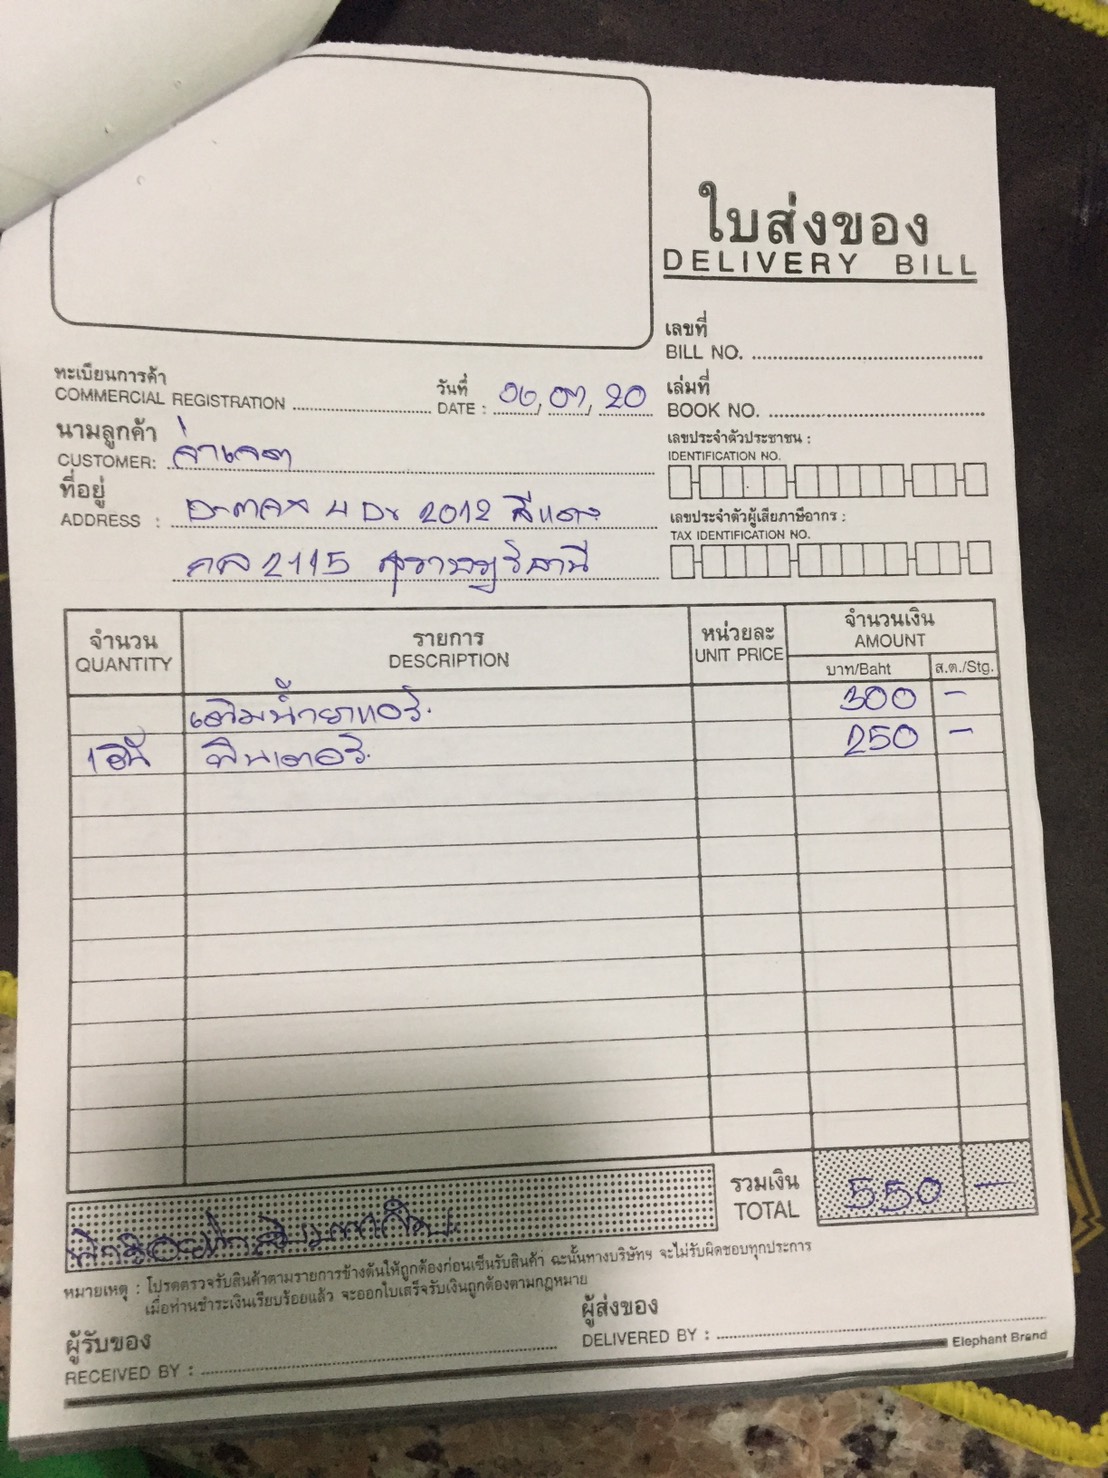 ใบส่งของ
DELIVERY BILL
เลขที่
BILL NO.
ทะเบียนการค้า
COMMERCIAL REGISTRATION
วันที่
DATE : 06, 07, 20
เล่มที่
BOOK NO.
นามลูกค้า
CUSTOMER:
เลขประจำตัวประชาชน :
IDENTIFICATION NO.
ที่อยู่
ADDRESS : 2012 สีแดง
เลขประจำตัวผู้เสียภาษีอากร :
TAX IDENTIFICATION NO.
กล 2115 สุราษฎร์ธานี
จำนวน
QUANTITY
รายการ
DESCRIPTION
หน่วยละ
UNIT PRICE
จำนวนเงิน
AMOUNT
บาท/Baht ส.ต./Stg.
เติมน้ำยาแอร์ 300 -
1 อัน ฟินเตอร์ 250 -
รวมเงิน
TOTAL 550 -
หมายเหตุ : โปรดตรวจรับสินค้าตามรายการข้างต้นให้ถูกต้องก่อนเซ็นรับสินค้า ฉะนั้นทางบริษัทฯ จะไม่รับผิดชอบทุกประการ
เมื่อท่านชำระเงินเรียบร้อยแล้ว จะออกใบเสร็จรับเงินถูกต้องตามกฎหมาย
ผู้รับของ
RECEIVED BY :
ผู้ส่งของ
DELIVERED BY :
Elephant Brand